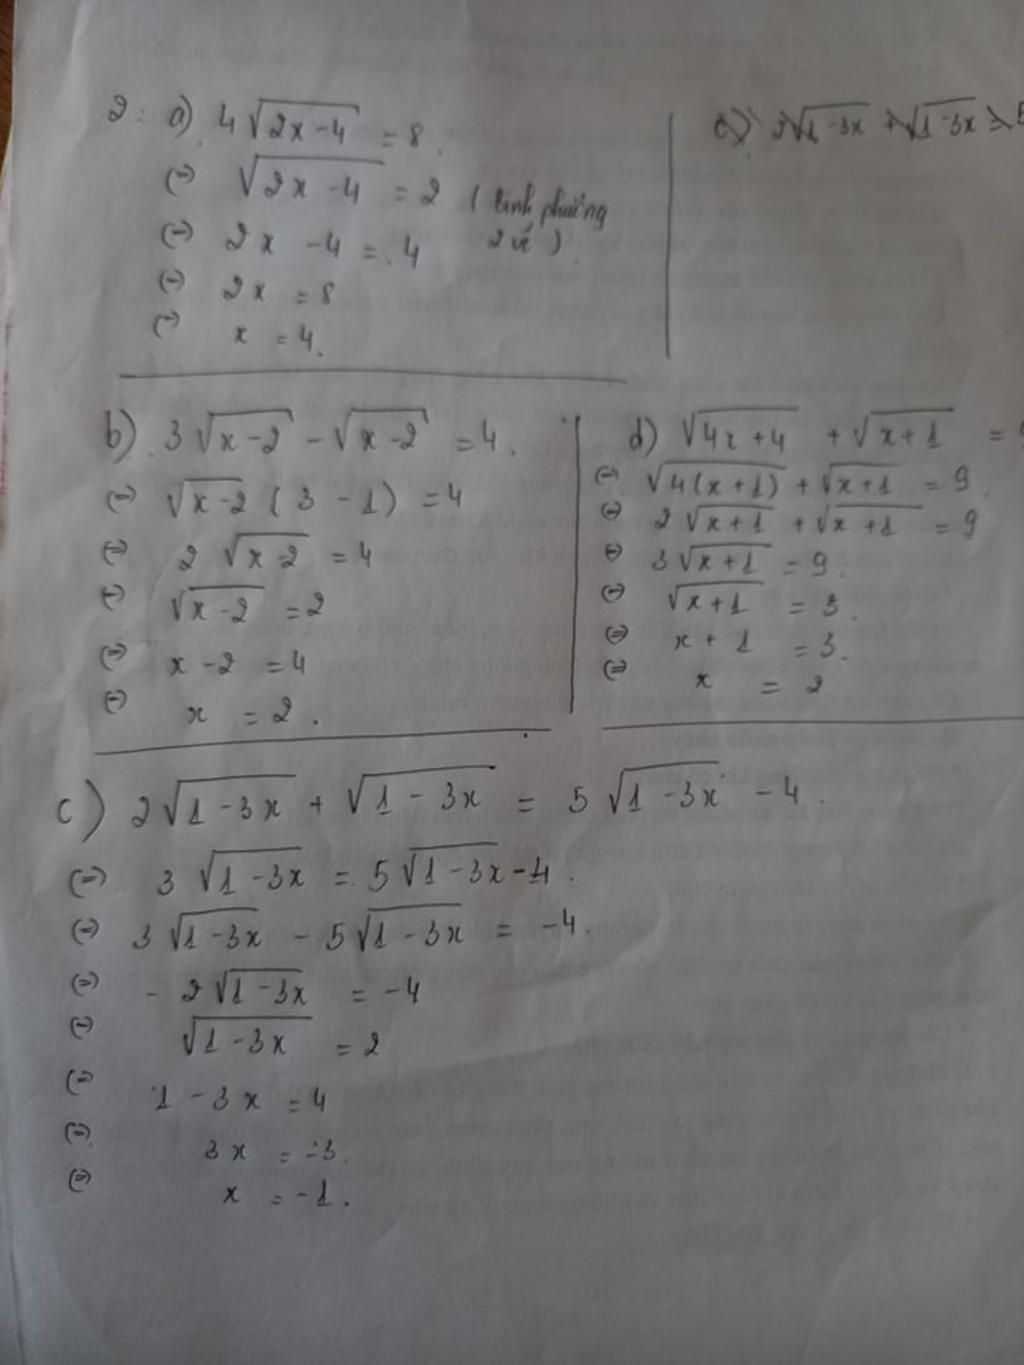 2: a) 4√(2x-4) = 8.
(=) √(2x-4) = 2 (bình phương
2 vế).
(=) 2x - 4 = 4
(=) 2x = 8
(=) x = 4.
b) 3√(x-2) - √(x-2) = 4.
(=) √(x-2) (3 - 1) = 4
(=) 2√(x-2) = 4
(=) √(x-2) = 2
(=) x - 2 = 4
(=) x = 2.
d) √(4x+4) + √(x+1) =
(=) √(4(x+1)) + √(x+1) = 9.
(=) 2√(x+1) + √(x+1) = 9
(=) 3√(x+1) = 9.
(=) √(x+1) = 3.
(=) x + 1 = 3.
(=) x = 2
c) 2√(1-3x) + √(1-3x) = 5√(1-3x) - 4.
(=) 3√(1-3x) = 5√(1-3x) - 4.
(=) 3√(1-3x) - 5√(1-3x) = -4.
(=) -2√(1-3x) = -4
(=) √(1-3x) = 2
(=) 1 - 3x = 4
(=) 3x = -3.
(=) x = -1.